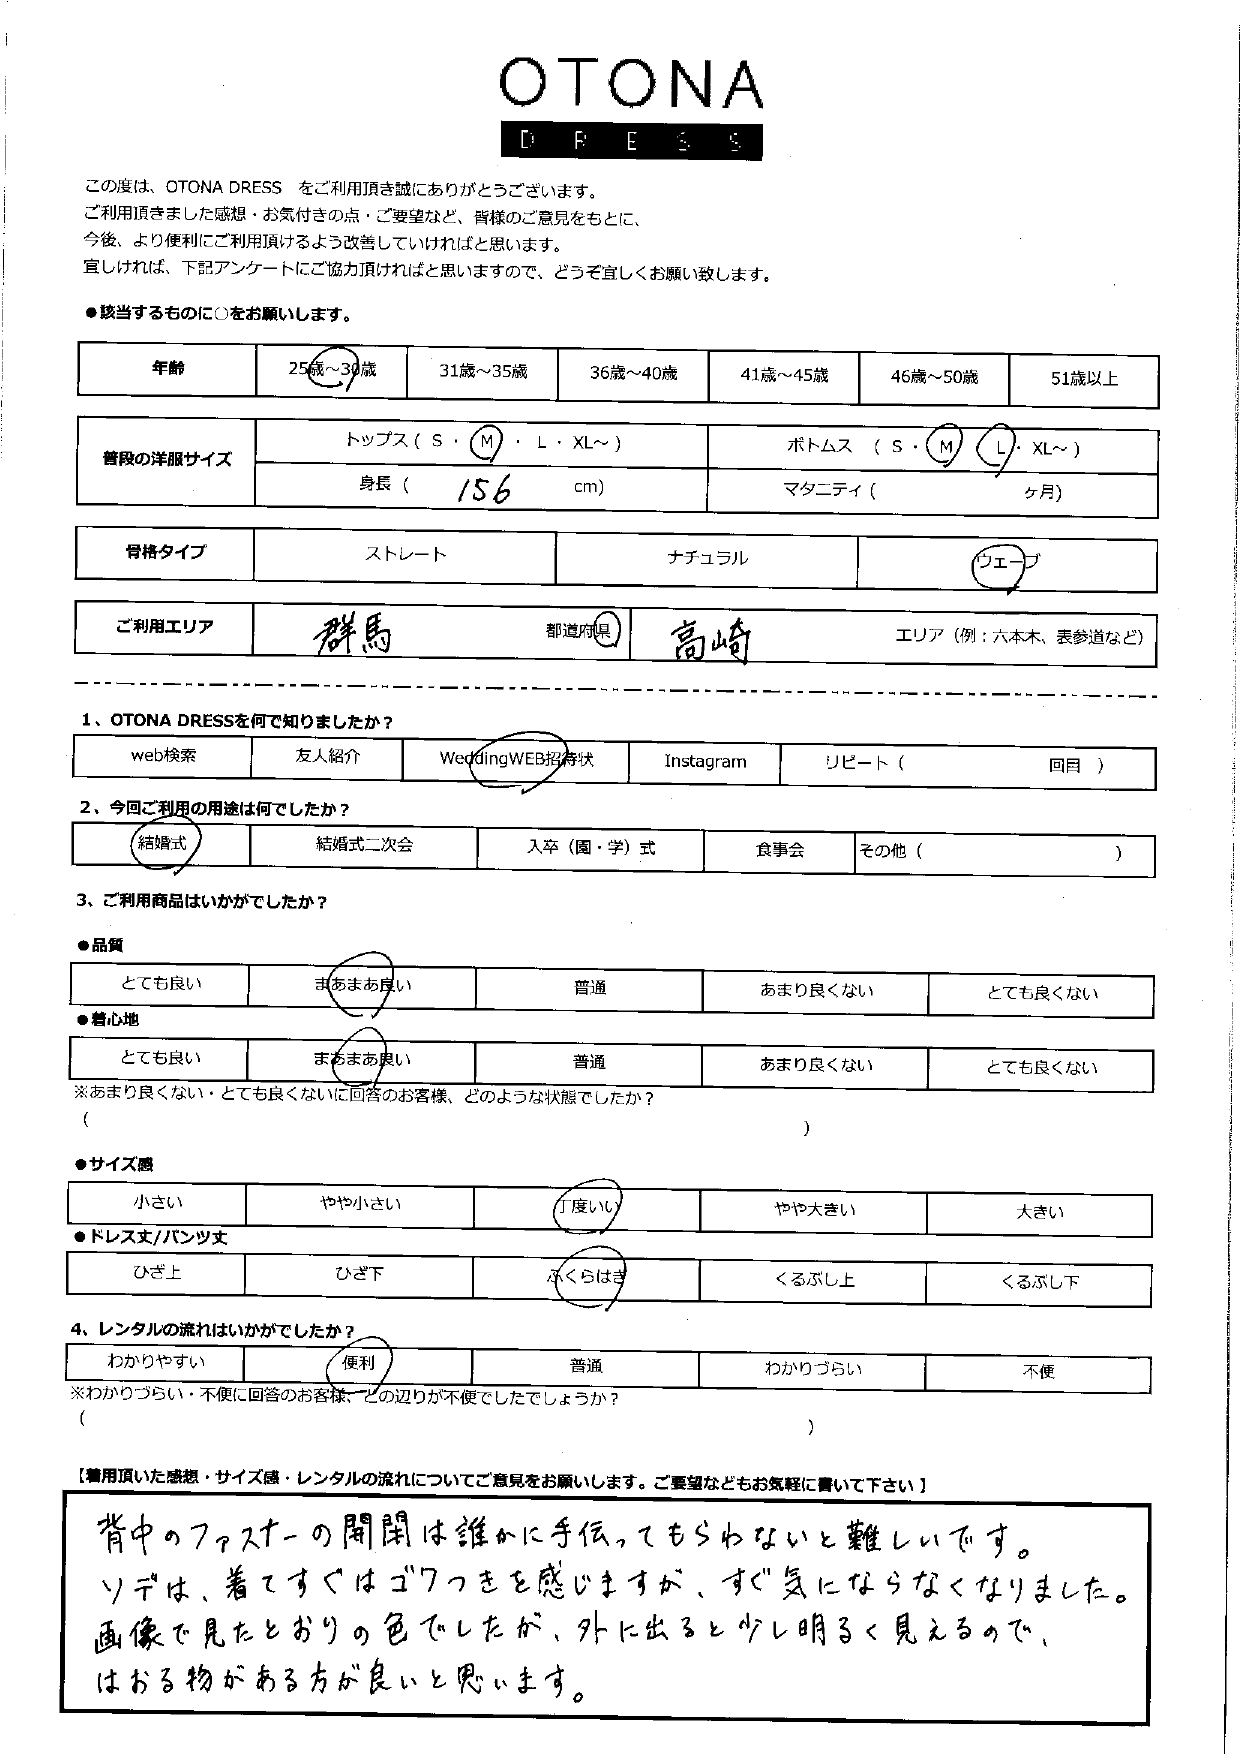 OTONA
DRESS
この度は、OTONA DRESS をご利用頂き誠にありがとうございます。
ご利用頂きました感想・お気付きの点・ご要望など、皆様のご意見をもとに、
今後、より便利にご利用頂けるよう改善していければと思います。
宜しければ、下記アンケートにご協力頂ければと思いますので、どうぞ宜しくお願い致します。
●該当するものに○をお願いします。
年齢 25歳～30歳 31歳～35歳 36歳～40歳 41歳～45歳 46歳～50歳 51歳以上
普段の洋服サイズ トップス ( S ・ M ・ L ・ XL～ ) ボトムス ( S ・ M ・ L ・ XL～ )
身長 ( 156 cm) マタニティ ( ヶ月)
骨格タイプ ストレート ナチュラル ウェーブ
ご利用エリア 群馬 都道府県 高崎 エリア（例：六本木、表参道など）
1、OTONA DRESSを何で知りましたか？
web検索 友人紹介 WeddingWEB招待状 Instagram リピート ( 回目 )
2、今回ご利用の用途は何でしたか？
結婚式 結婚式二次会 入卒（園・学）式 食事会 その他 ( )
3、ご利用商品はいかがでしたか？
●品質
とても良い まあまあ良い 普通 あまり良くない とても良くない
●着心地
とても良い まあまあ良い 普通 あまり良くない とても良くない
※あまり良くない・とても良くないに回答のお客様、どのような状態でしたか？
( )
●サイズ感
小さい やや小さい 丁度いい やや大きい 大きい
●ドレス丈/パンツ丈
ひざ上 ひざ下 ふくらはぎ くるぶし上 くるぶし下
4、レンタルの流れはいかがでしたか？
わかりやすい 便利 普通 わかりづらい 不便
※わかりづらい・不便に回答のお客様、どの辺りが不便でしたでしょうか？
( )
【着用頂いた感想・サイズ感・レンタルの流れについてご意見をお願いします。ご要望などもお気軽に書いて下さい】
背中のファスナーの開閉は誰かに手伝ってもらわないと難しいです。
ソデは、着てすぐはゴワつきを感じますが、すぐ気にならなくなりました。
画像で見たとおりの色でしたが、外に出ると少し明るく見えるので、
はおる物がある方が良いと思います。